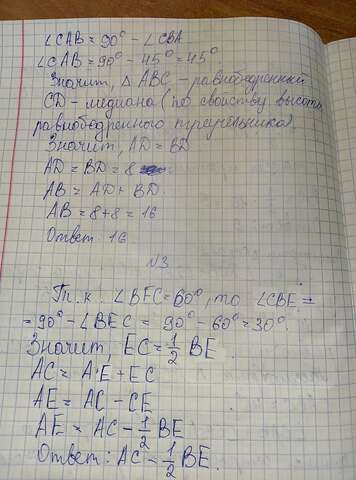 ∠CAB = 90° - ∠CBA
∠CAB = 90° - 45° = 45°
Значит, △ ABC - равнобедренный
CD - медиана (по свойству высоты
равнобедренного треугольника).
Значит, AD = BD
AD = BD = 8
AB = AD + BD.
AB = 8 + 8 = 16
Ответ: 16
№3
Т. к. ∠BEC = 60°, то ∠CBE =
= 90° - ∠BEC = 90° - 60° = 30°.
Значит, EC = 1/2 BE.
AC = AE + EC
AE = AC - CE
AE = AC - 1/2 BE
Ответ: AC - 1/2 BE.